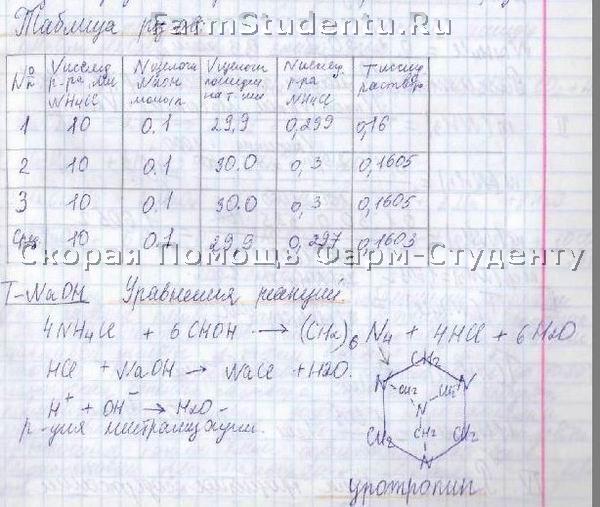 FarmStudentu.Ru
Таблица
№ п
V исслед. р-ра, мл NH4Cl
N щелочи NaOH моль/л
V щелочи на Т мл
N исслед. р-ра NH4Cl
Т исслед. раствора
1 10 0.1 29,9 0,299 0,16
2 10 0.1 30.0 0,3 0,1605
3 10 0.1 30.0 0,3 0,1605
Сред 10 0.1 29.9 0,297 0,1603
Скорая Помощь Фарм-Студенту
T-NaOH Уравнения реакций.
4NH4Cl + 6CHOH → (CH2)6 N4 + 4HCl + 6H2O
HCl + NaOH → NaCl + H2O.
H+ + OH- → H2O -
р-ция нейтрализации.
CH2
N N
CH2 CH2
N
CH2 CH2 CH2
N
уротропин